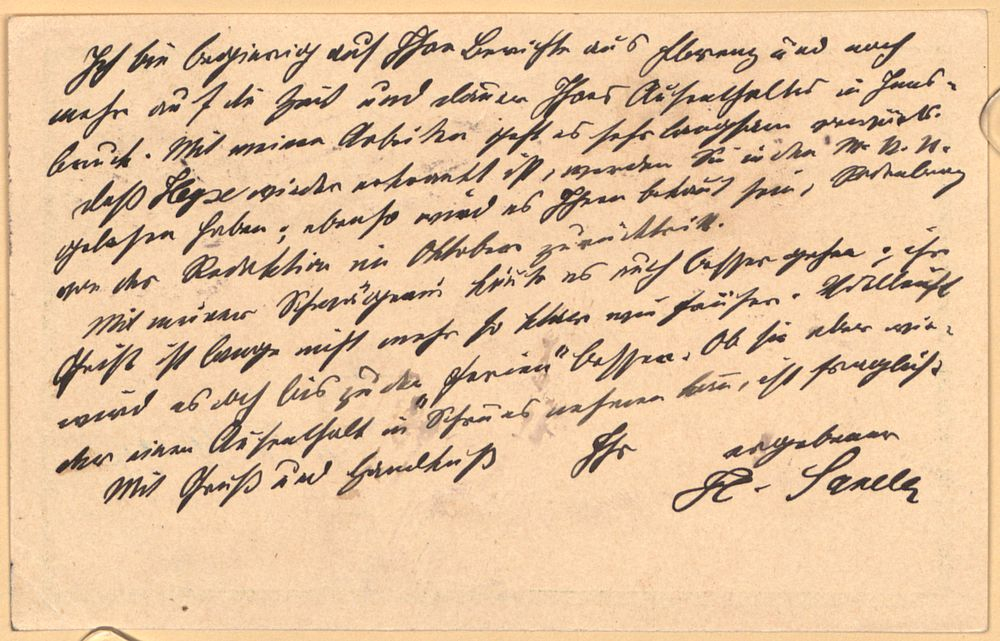 Ich bin begierig auf Ihre Berichte aus Florenz und noch
mehr auf die Zeit und Dauer Ihres Aufenthaltes in Inns-
bruck. Mit meinen Arbeiten geht es sehr langsam vorwärts.
Daß Heyse wieder erkrankt ist, werden Sie in den M. N. N.
gelesen haben; ebenso wird es Ihnen bekant sein, Rodenberg
von der Redaktion im Oktober zurücktritt.
Mit meiner Schwägerin könte es auch besser gehen; ihr
Geist ist lange nicht mehr so klar wie früher. Vielleicht
wird es doch bis zu den "Ferien" besser. Ob sie aber wie-
der einen Aufenthalt in Schruns nehmen kann, ist fraglich.
Mit Gruß und Handkuß Ihr ergebener
H. Sander